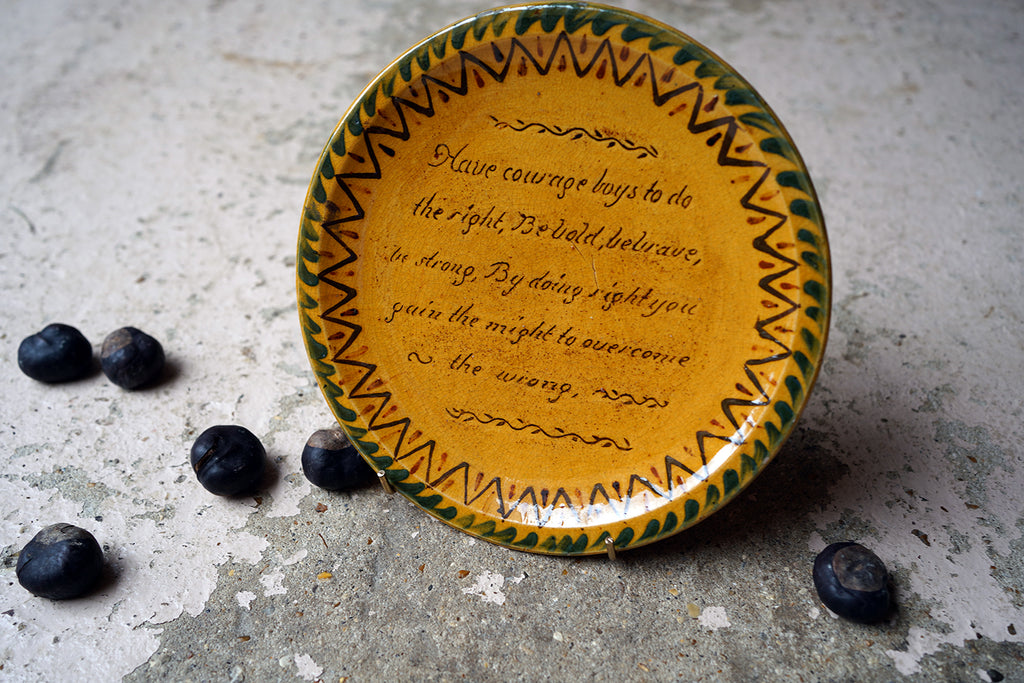 Have courage boys to do
the right, Be bold, be brave,
be strong, By doing right you
gain the might to overcome
the wrong,